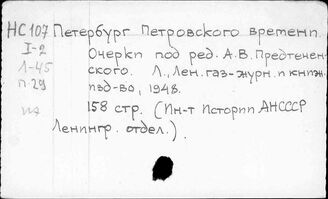 НС107 Петербург Петровского времени.
I-2 Очерки под ред. А.В. Предтечен-
Л-45 ского. Л., Лен. газ-журн. и книжн.
п.29 изд-во, 1948.
158 стр. (Ин-т Истории АНСССР
Ленингр. отдел.).